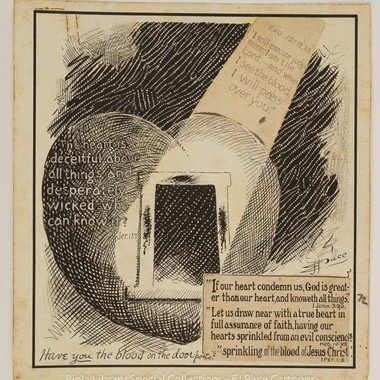 EXO. 12:12,13.
"I will execute judg-
ment: I am the
Lord,— and when
I see the blood,
I will pass
over you."
"The heart is
deceitful above
all things, and
desperately
wicked: who
can know it?
Jer. 17:9
E. J. Pace
"If our heart condemn us, God is great-
er than our heart, and knoweth all things."
1 John 3:20.
"Let us draw near with a true heart in
full assurance of faith, having our
hearts sprinkled from an evil conscience."
Heb. 10:22
"sprinkling of the blood of Jesus Christ."
1 Pet. 1:2
Have you the blood on the door
Library Special Collections